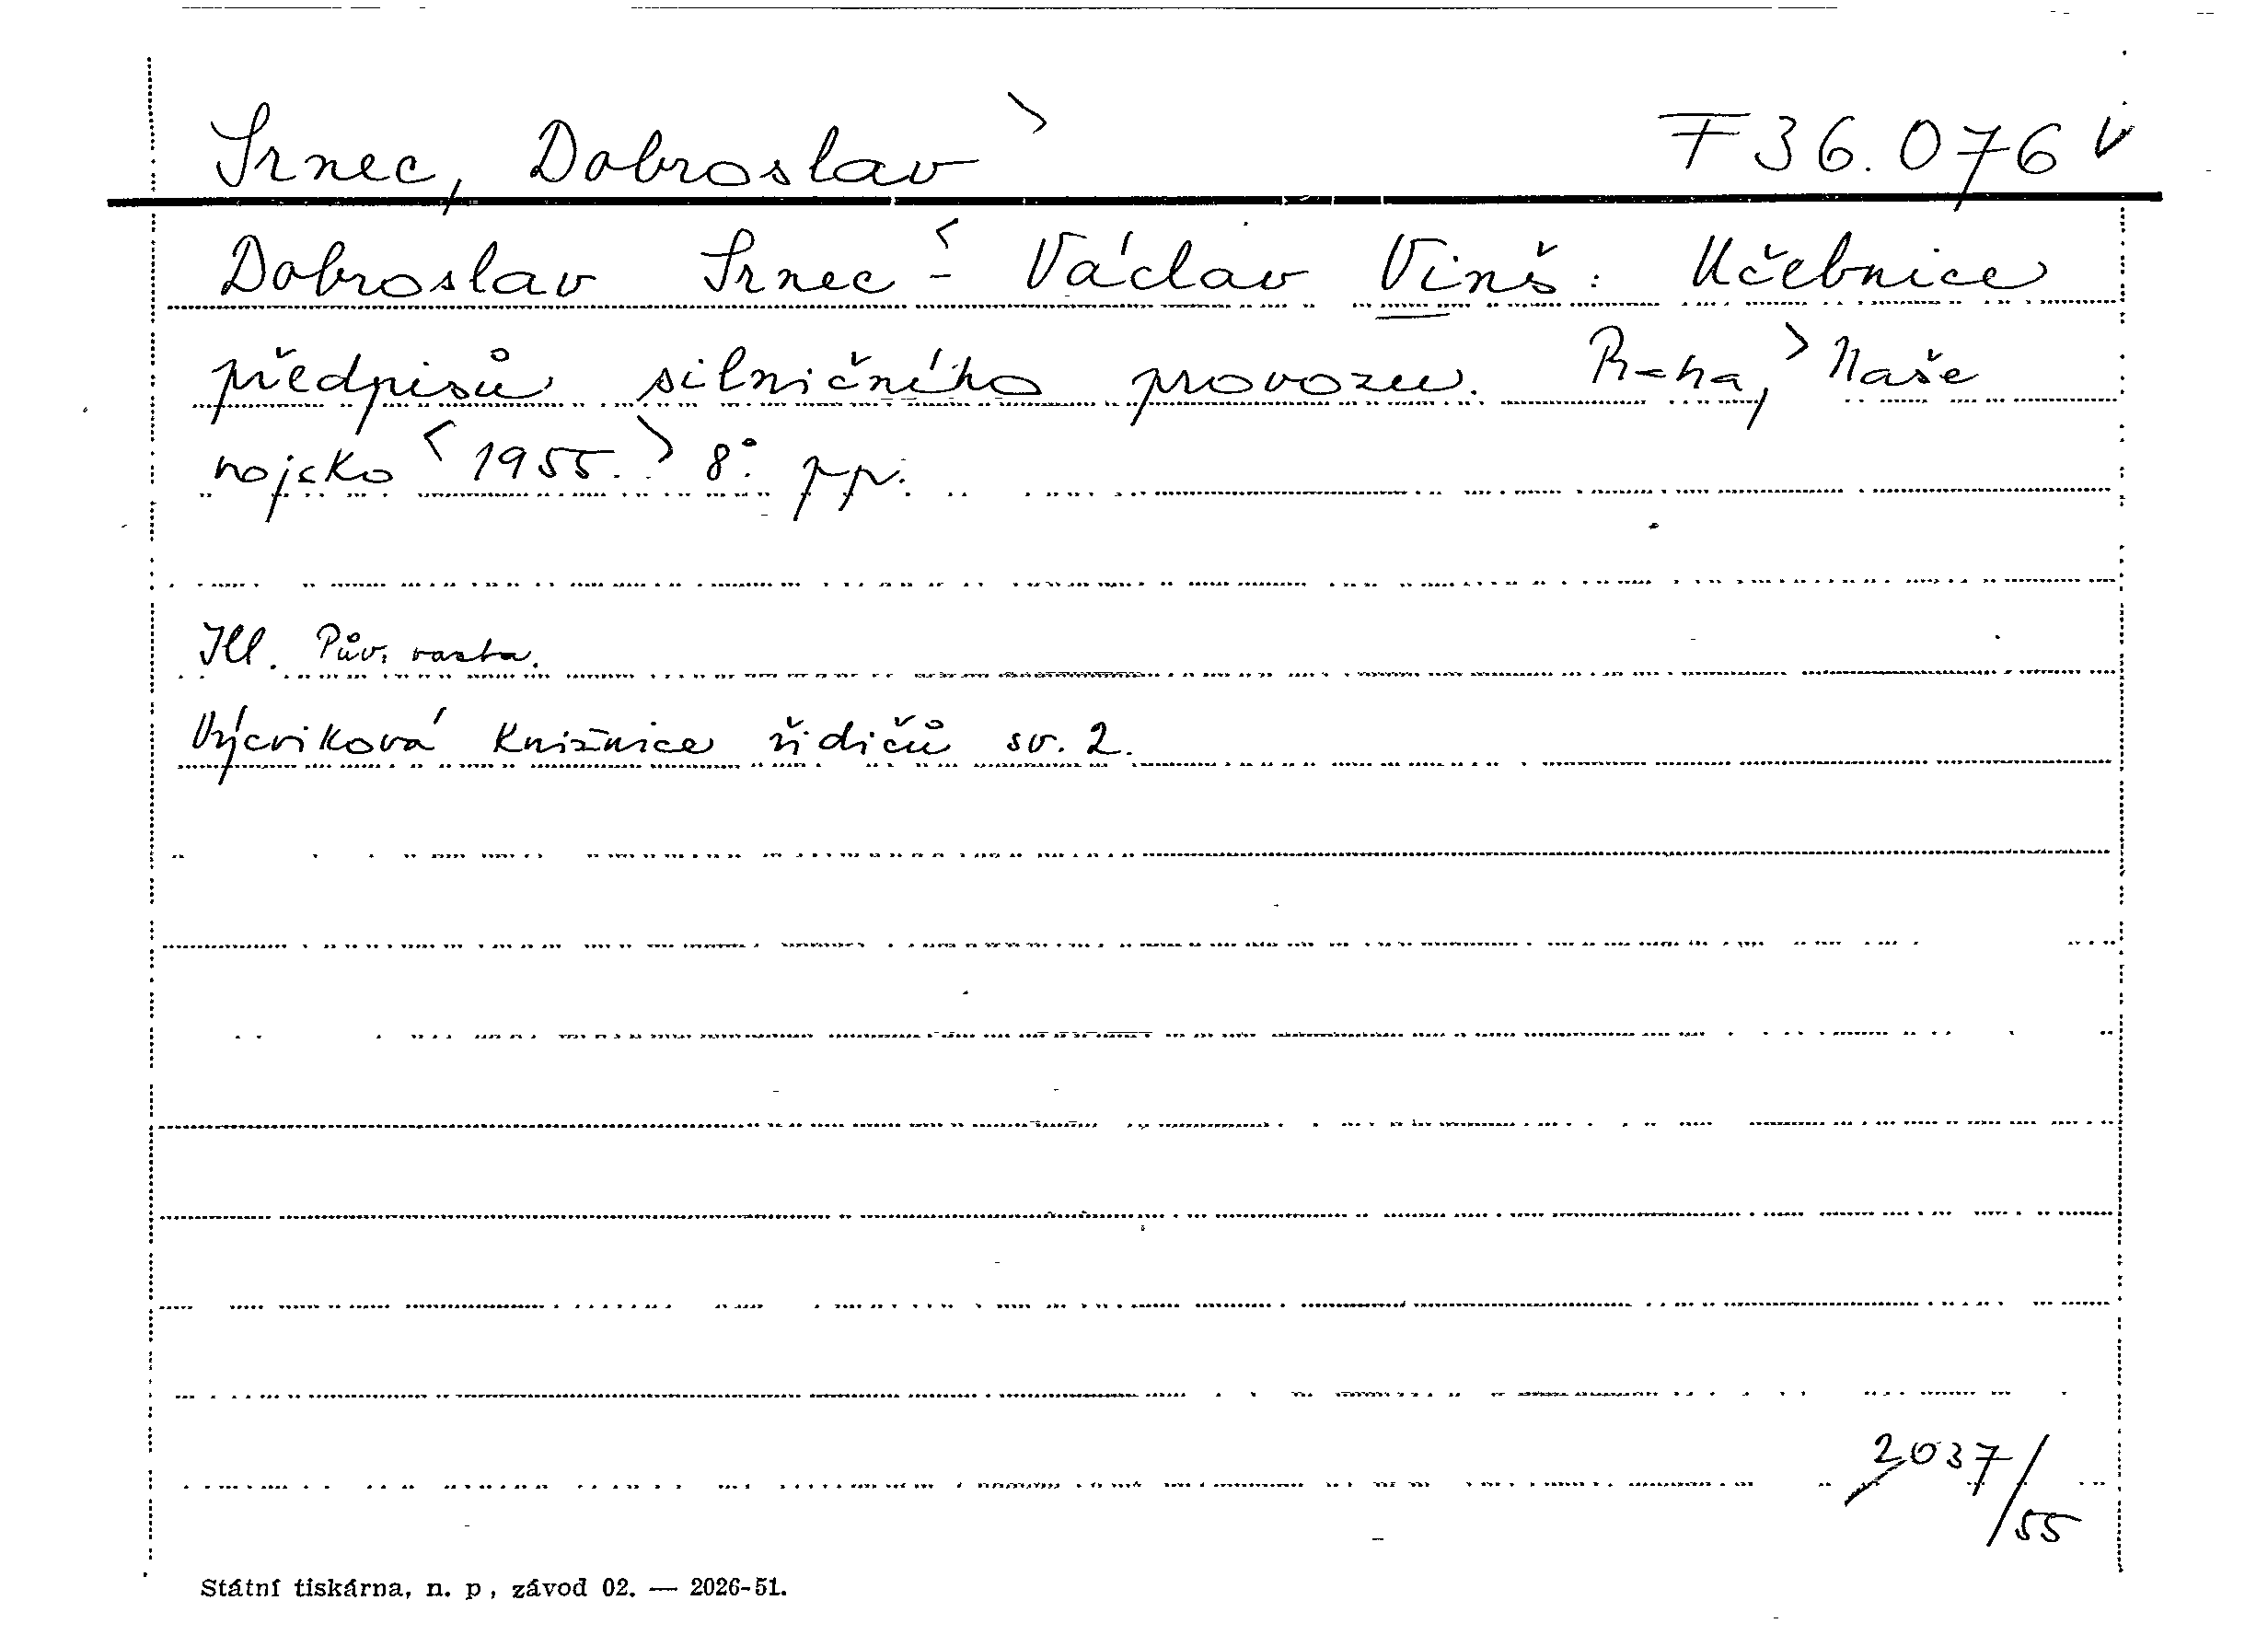 Srnec, Dobroslav > F 36.076 V
Dobroslav Srnec < - Václav Vinš: Učebnice
předpisů silničního provozu. Praha, > Naše
vojsko < 1955. > 8°. pp.
Ill. Pův. vazba.
Výcviková knižnice řidičů sv. 2.
2037/55
Státní tiskárna, n. p, závod 02. — 2026-51.